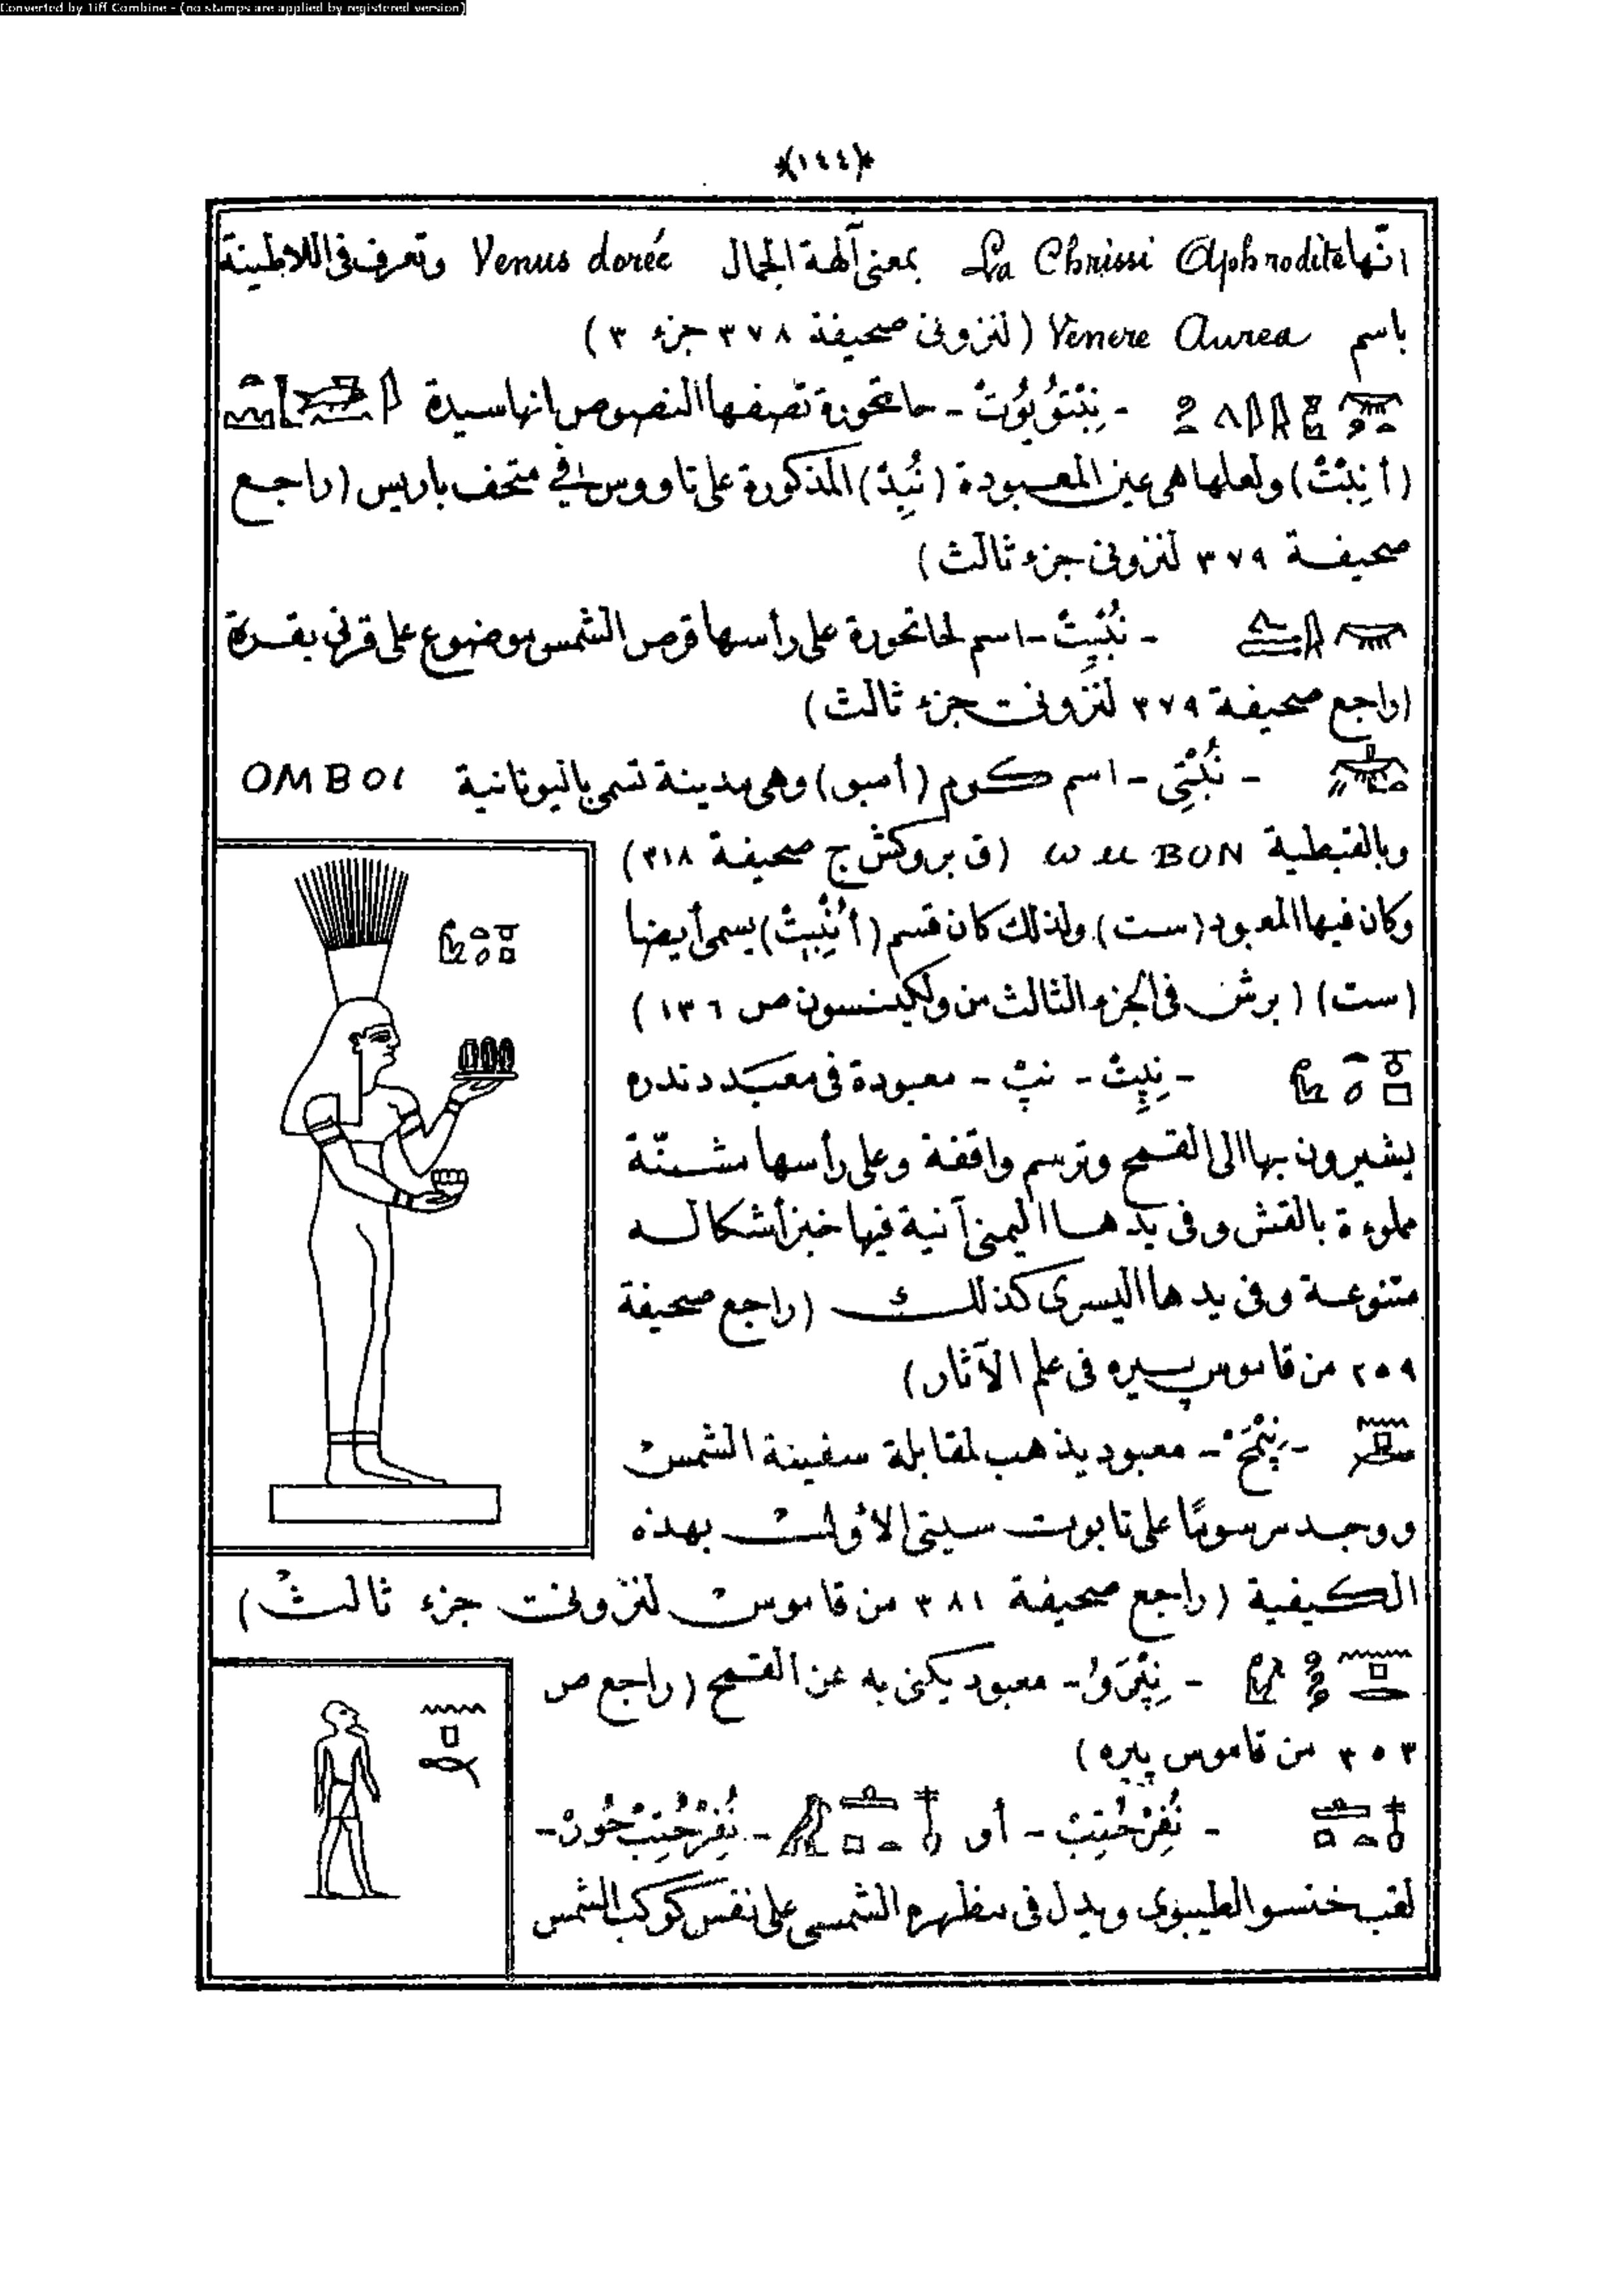 Converted by Tiff Combine - (no stamps are applied by registered version)
(١٤٤)
انّها La Chrissi Aphrodite بمعنى آلهة الجمال Venus dorée وتعرف فى اللاطينة
باسم Venere Aurea (لنزونى صحيفة ٣٧٨ جزء ٣)
- نِبْتوُيُوُتْ - حاتحورة تصفها النصوص بانها سيدة
(أنِبْتْ) ولعلها هى عين المعبودة (نُبِتْ) المذكورة على ناووس فى متحف باريس (راجع
صحيفة ٣٧٩ لنزونى جزء ثالث)
- نُبْيِتْ - اسم لحاتحورة على رأسها قرص الشمس موضوع على قرنى بقرة
(راجع صحيفة ٣٧٩ لنزونى جزء ثالث)
- نُبْتِى - اسم كوم (أمبو) وهى مدينة تسمى باليونانية OMBOI
وبالقبطية ⲱⲙBON (ق بروكش ج صحيفة ٣١٨)
وكان فيها المعبود (ست) ولذلك كان قسم يسمى أيضا
(ست) (برش فى الجزء الثالث من ولكينسون ص ١٣٦)
- نِپِتْ - نپْ - معبودة فى معبد دندره
يشيرون بها الى القمح وترسم واقفة وعلى رأسها مشنّة
مملوءة بالقش وفى يدها اليمنى آنية فيها خبز أشكاله
متنوعة وفى يدها اليسرى كذلك (راجع صحيفة
٢٥٩ من قاموس پييره فى علم الآثار)
- نِپْمَحْ - معبود يذهب لمقابلة سفينة الشمس
ووجد مرسومًا على تابوت سيتى الأول بهذه
الكيفية (راجع صحيفة ٣٨١ من قاموس لنزونى جزء ثالث)
- نِپْرَوُ - معبود يكنى به عن القمح (راجع ص
٣٥٣ من قاموس پيره)
- نُفِرْحُتِبْ - أو - نُفِرْحُتِبْ حُورْ -
لقب خنسو الطيبوى ويدل فى مظهره الشمسى على نفس كوكب الشمس